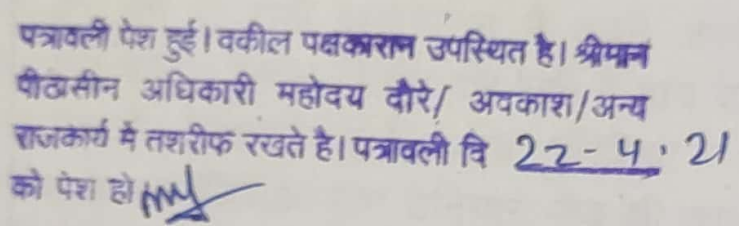 पत्रावली पेश हुई। वकील पक्षकारान उपस्थित है। श्रीमान
पीठासीन अधिकारी महोदय दौरे/ अवकाश/अन्य
राजकार्य मे तशरीफ रखते है। पत्रावली दि 22-4.21
को पेश हो